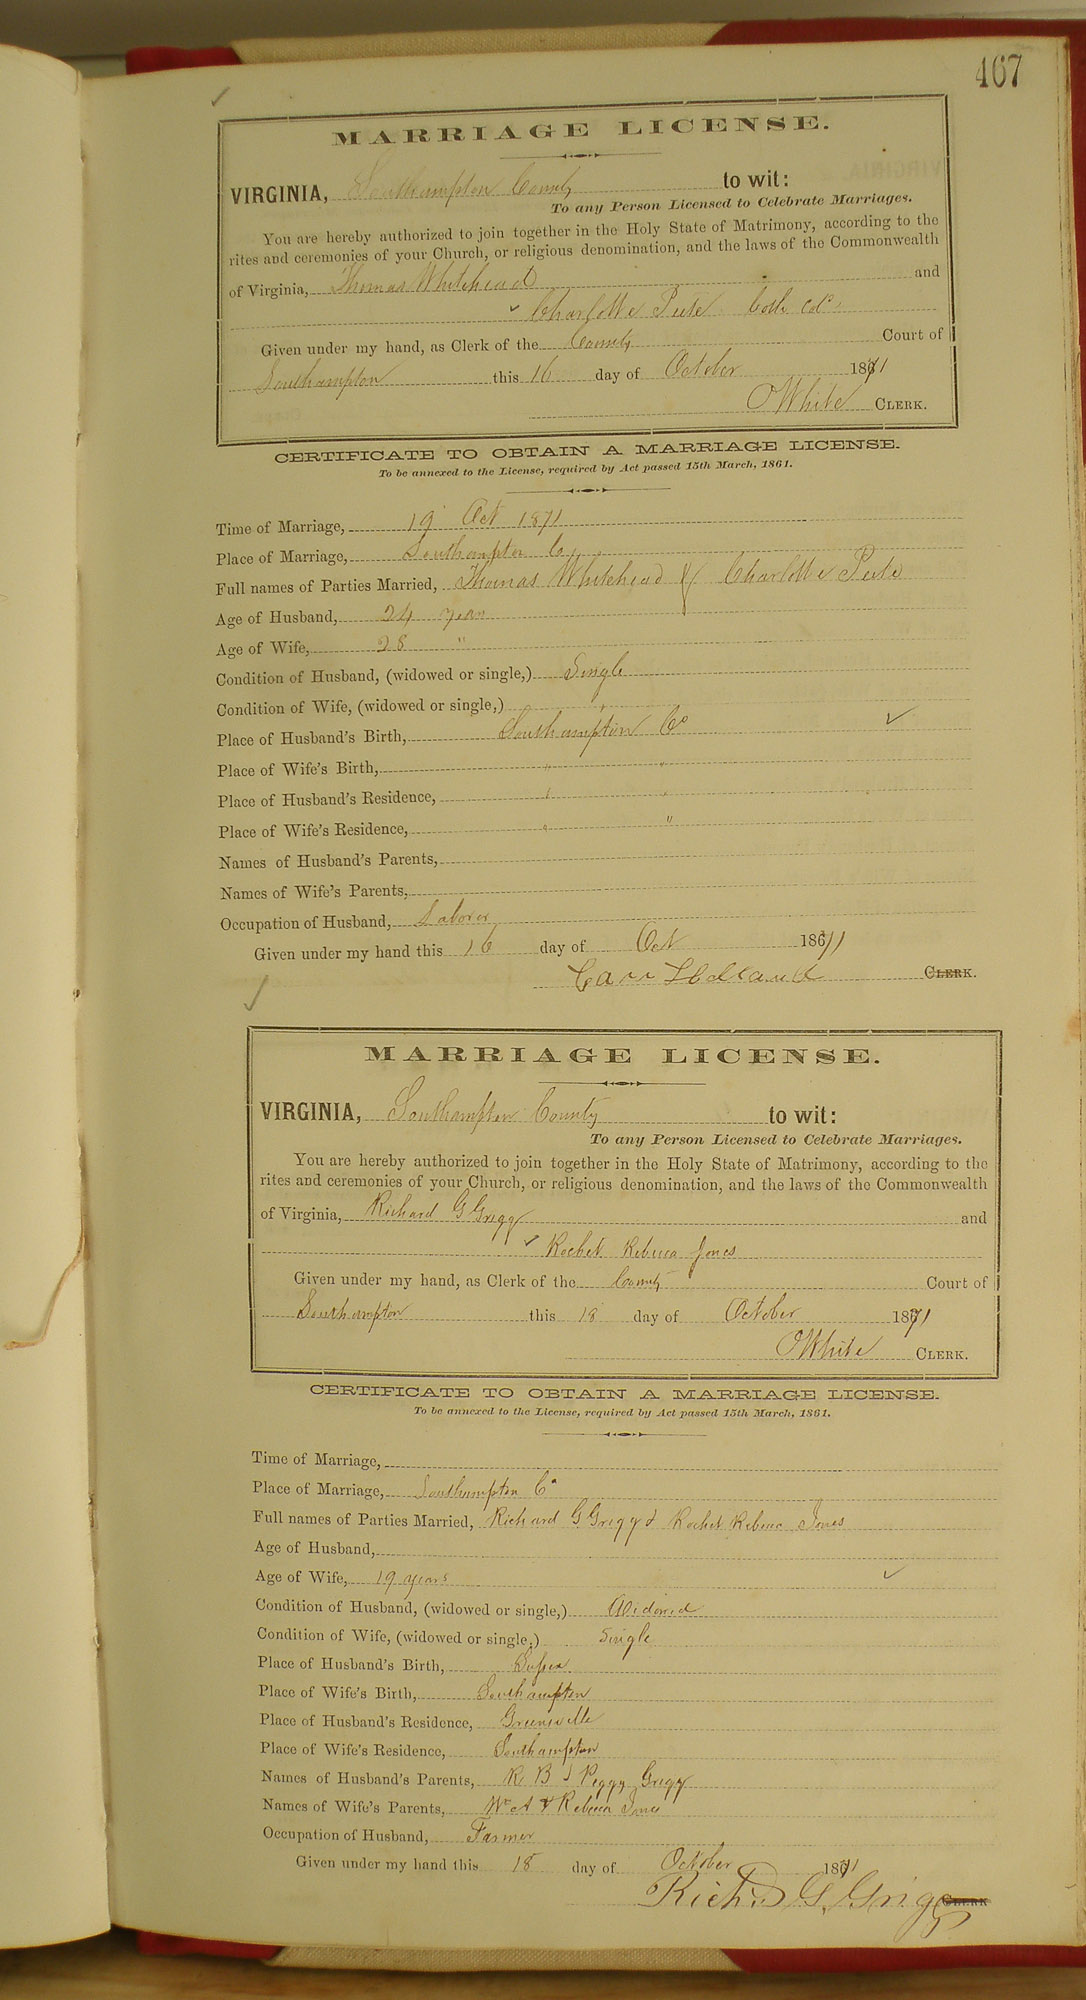 467
MARRIAGE LICENSE.
VIRGINIA, Southampton County to wit:
To any Person Licensed to Celebrate Marriages.
You are hereby authorized to join together in the Holy State of Matrimony, according to the
rites and ceremonies of your Church, or religious denomination, and the laws of the Commonwealth
of Virginia, Thomas Whitehead and
Charlotte Peete both cold.
Given under my hand, as Clerk of the County Court of
Southampton this 16 day of October 1871
O White CLERK.
CERTIFICATE TO OBTAIN A MARRIAGE LICENSE.
To be annexed to the License, required by Act passed 15th March, 1861.
Time of Marriage, 19 Oct 1871
Place of Marriage, Southampton Co
Full names of Parties Married, Thomas Whitehead & Charlotte Peete
Age of Husband, 24 years
Age of Wife, 28 "
Condition of Husband, (widowed or single,) Single
Condition of Wife, (widowed or single,) "
Place of Husband's Birth, Southampton Co
Place of Wife's Birth, " "
Place of Husband's Residence, " "
Place of Wife's Residence, " "
Names of Husband's Parents,
Names of Wife's Parents,
Occupation of Husband, Laborer
Given under my hand this 16 day of Oct 1871
Carr Holland CLERK.
MARRIAGE LICENSE.
VIRGINIA, Southampton County to wit:
To any Person Licensed to Celebrate Marriages.
You are hereby authorized to join together in the Holy State of Matrimony, according to the
rites and ceremonies of your Church, or religious denomination, and the laws of the Commonwealth
of Virginia, Richard G Grigg and
Rochet Rebecca Jones
Given under my hand, as Clerk of the County Court of
Southampton this 18 day of October 1871
O White CLERK.
CERTIFICATE TO OBTAIN A MARRIAGE LICENSE.
To be annexed to the License, required by Act passed 15th March, 1861.
Time of Marriage,
Place of Marriage, Southampton Co
Full names of Parties Married, Richard G Grigg & Rochet Rebecca Jones
Age of Husband,
Age of Wife, 19 years
Condition of Husband, (widowed or single,) Widowed
Condition of Wife, (widowed or single,) Single
Place of Husband's Birth, Sussex
Place of Wife's Birth, Southampton
Place of Husband's Residence, Greensville
Place of Wife's Residence, Southampton
Names of Husband's Parents, R B & Peggy Grigg
Names of Wife's Parents, Wm A & Rebecca Jones
Occupation of Husband, Farmer
Given under my hand this 18 day of October 1871
Richd G. Grigg CLERK